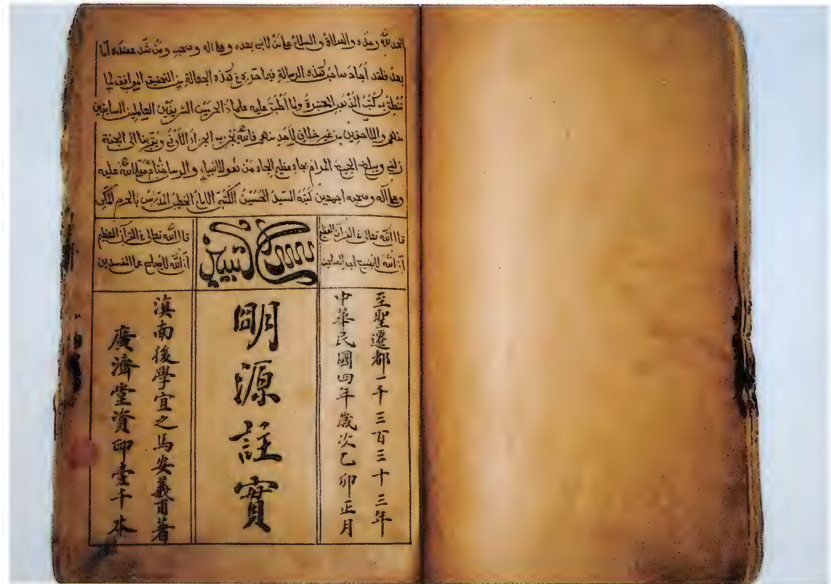 الحمد لله وحده والصلاة والسلام على من لا نبي بعده وعلى اله وصحبه ومن شد عضده أما
بعد فلقد أجاد صاحب هذه الرسالة فيما حرره في هذه العجالة من التحقيق الموافق لما
تنطق به كتب المذهب المعتبرة ولما أطبق عليه علماء الحرمين الشريفين العاملين السابقين
منهم واللاحقين من غير خلاف لأحد منهم فالله يجزيه الجزاء الأوفى ويقربنا الى الجنة
زلفى ويبلغ الجميع المرام بجاه عظيم الجاه من هو للأنبياء والرسل ختام صلى الله عليه
وعلى آله وصحبه اجمعين كتبه السيد الحسين الكتبي الامام الخطيب المدرس بالحرم المكي
قال الله تعالى في القرآن العظيم
ان الله لا يضيع اجر
قال الله تعالى في القرآن العظيم
ان الله لا يصلح عمل المفسدين
至聖遷都一千三百三十三年
中華民國四年歲次乙卯正月
明源註實
滇南後學宜之馬安義甫著
廣濟堂資印壹千本